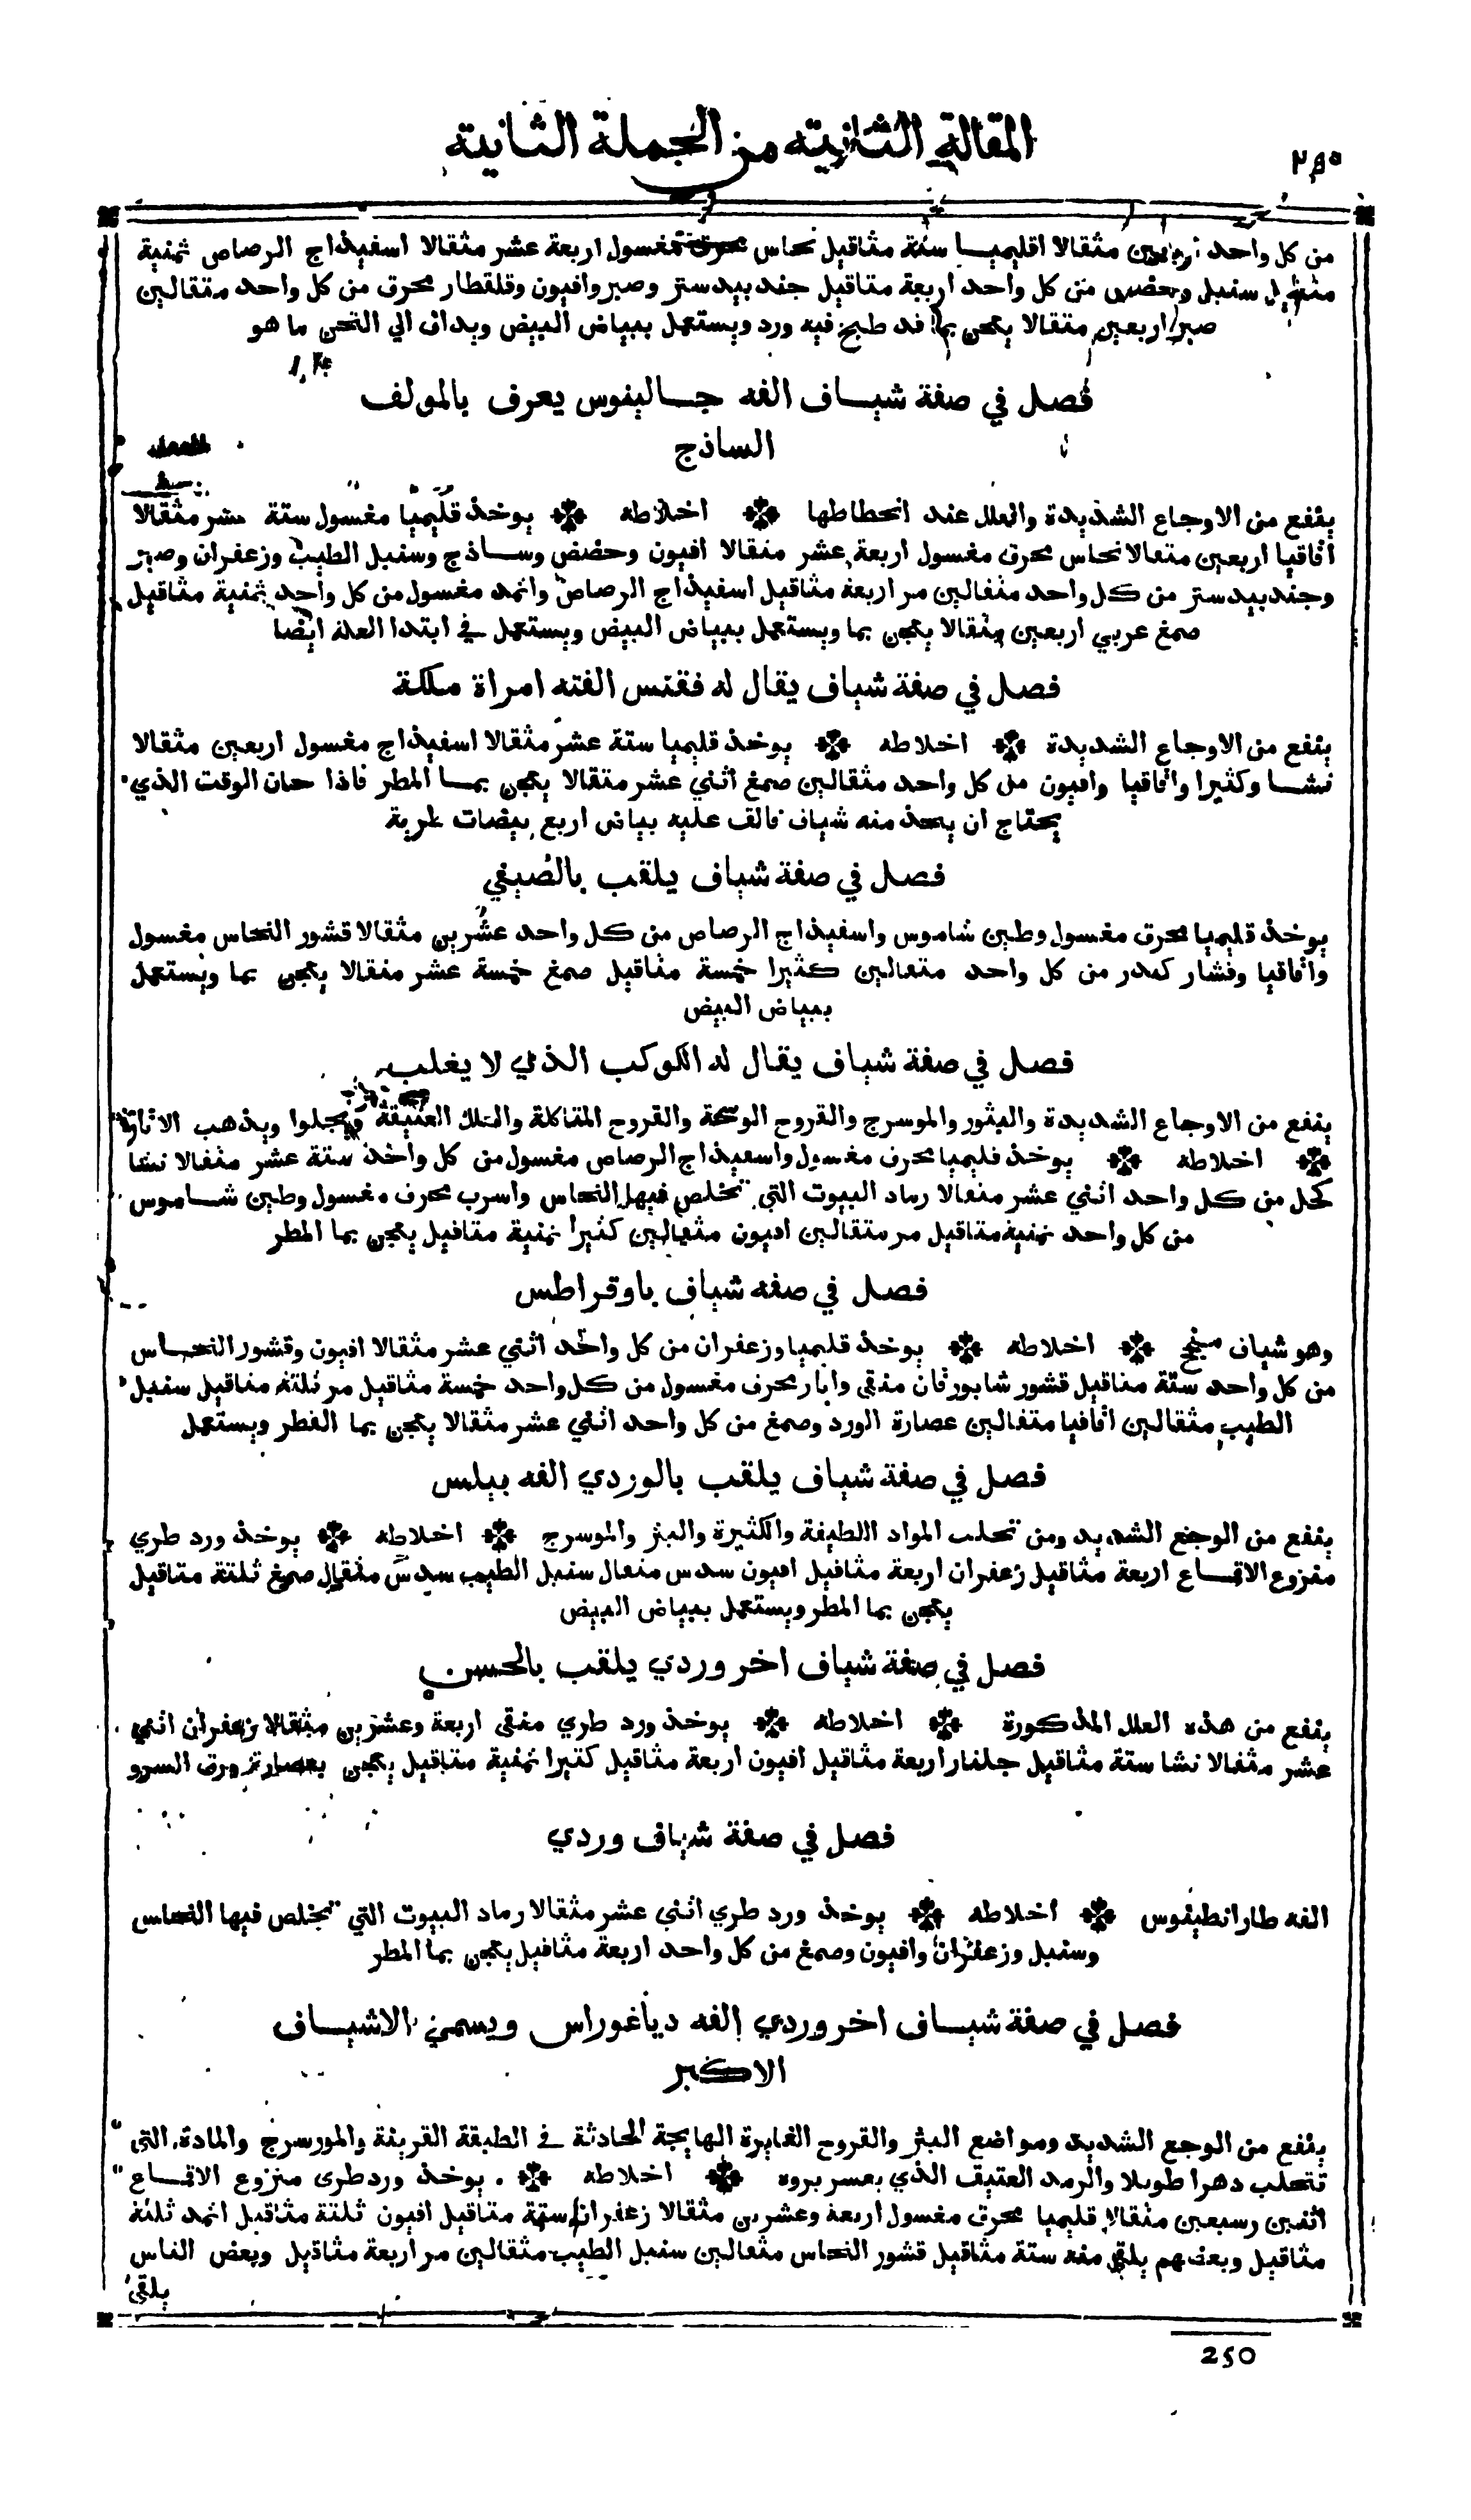 المقالة الثانية من الجملة الثانية
٢٥٠
من كل واحد اربعين مثقالا اقليميا ستة مثاقيل نحاس محرق مغسول اربعة عشر مثقالا اسفيذاج الرصاص ثمنية
مثاقيل سنبل وحضض من كل واحد اربعة مثاقيل جندبيدستر وصبر وافيون وقلقطار محرق من كل واحد مثقالين
صبر اربعين مثقالا يعجن بما قد طبخ فيه ورد ويستعمل ببياض البيض ويداف الي الثخن ما هو
فصل في صفة شياف الفه جالينوس يعرف بالمولف
الساذج
ينفع من الاوجاع الشديدة والعلل عند انحطاطها ✤ اخلاطه ✤ يوخذ قليميا مغسول ستة عشر مثقالا
اقاقيا اربعين مثقالا نحاس محرق مغسول اربعة عشر مثقالا افيون وحضض وساذج وسنبل الطيب وزعفران وصبر
وجندبيدستر من كل واحد مثقالين مر اربعة مثاقيل اسفيذاج الرصاص واثمد مغسول من كل واحد ثمنية مثاقيل
صمغ عربي اربعين مثقالا يعجن بما ويستعمل ببياض البيض ويستعمل في ابتدا العلة ايضا
فصل في صفة شياف يقال له فقنس الفته امراة ملكة
ينفع من الاوجاع الشديدة ✤ اخلاطه ✤ يوخذ قليميا ستة عشر مثقالا اسفيذاج مغسول اربعين مثقالا
نشا وكثيرا واقاقيا وافيون من كل واحد مثقالين صمغ اثني عشر مثقالا يعجن بما المطر فاذا حان الوقت الذي
يحتاج ان يتخذ منه شياف فالف عليه بياض اربع بيضات طرية
فصل في صفة شياف يلقب بالصيفي
يوخذ قليميا محرق مغسول وطين شاموس واسفيذاج الرصاص من كل واحد عشرين مثقالا قشور النحاس مغسول
واقاقيا وقشار كندر من كل واحد مثقالين كثيرا خمسة مثاقيل صمغ خمسة عشر مثقالا يعجن بما ويستعمل
ببياض البيض
فصل في صفة شياف يقال له الكوكب الذي لا يغلب
ينفع من الاوجاع الشديدة والبثور والموسرج والقروح الوسخة والقروح المتاكلة والعلل العتيقة ويجلوا ويذهب الاثار
✤ اخلاطه ✤ يوخذ قليميا محرق مغسول واسفيذاج الرصاص مغسول من كل واحد ستة عشر مثقالا نشا
كحل من كل واحد اثني عشر مثقالا رماد البيوت التي تخلص فيها النحاس واسرب محرق مغسول وطين شاموس
من كل واحد ثمنية مثاقيل مر مثقالين افيون مثقالين كثيرا ثمنية مثاقيل يعجن بما المطر
فصل في صفه شياف باوقراطس
وهو شياف منجح ✤ اخلاطه ✤ يوخذ قليميا وزعفران من كل واحد اثني عشر مثقالا افيون وقشور النحاس
من كل واحد ستة مثاقيل قشور شابورقان منقي وابار محرق مغسول من كل واحد خمسة مثاقيل مر ثلثة مثاقيل سنبل
الطيب مثقالين اقاقيا مثقالين عصارة الورد وصمغ من كل واحد اثني عشر مثقالا يعجن بما القطر ويستعمل
فصل في صفة شياف يلقب بالوردي الفه بيلس
ينفع من الوجع الشديد ومن تحلب المواد اللطيفة والكثيرة والبثر والموسرج ✤ اخلاطه ✤ يوخذ ورد طري
منزوع الاقماع اربعة مثاقيل زعفران اربعة مثاقيل افيون سدس مثقال سنبل الطيب سدس مثقال صمغ ثلثة مثاقيل
يعجن بما المطر ويستعمل ببياض البيض
فصل في صفة شياف اخر وردي يلقب بالحسن
ينفع من هذه العلل المذكورة ✤ اخلاطه ✤ يوخذ ورد طري منقي اربعة وعشرين مثقالا زعفران اثني
عشر مثقالا نشا ستة مثاقيل جلنار اربعة مثاقيل افيون اربعة مثاقيل كثيرا ثمنية مثاقيل يعجن بعصارة ورق السرو
فصل في صفة شياف وردي
الفه طارانطينوس ✤ اخلاطه ✤ يوخذ ورد طري اثني عشر مثقالا رماد البيوت التي تخلص فيها النحاس
وسنبل وزعفران وافيون وصمغ من كل واحد اربعة مثاقيل يعجن بما المطر
فصل في صفة شياف اخر وردي الفه دياغوراس ويسمي الاشياف
الاكبر
ينفع من الوجع الشديد ومواضع البثر والقروح الغايرة الهايجة الحادثة في الطبقة القرينة والمورسرج والمادة التي
تتحلب دهرا طويلا والرمد العتيق الذي بعسر بروه ✤ اخلاطه ✤ يوخذ ورد طري منزوع الاقماع
اثنين وسبعين مثقالا قليميا محرق مغسول اربعة وعشرين مثقالا زعفران ستة مثاقيل افيون ثلثة مثاقيل اثمد ثلثة
مثاقيل وبعضهم يلقي منه ستة مثاقيل قشور النحاس مثقالين سنبل الطيب مثقالين مر اربعة مثاقيل وبعض الناس
يلقي
250